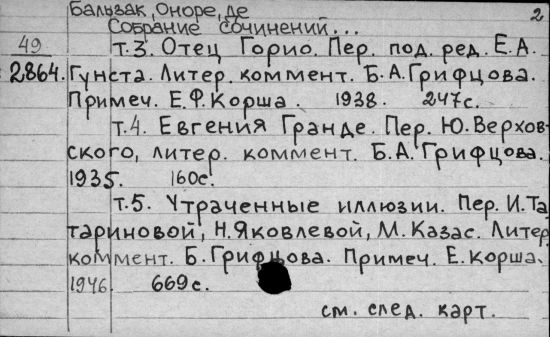 Бальзак, Оноре, де 2
Собрание сочинений...
49 т.3. Отец Горио. Пер. под. ред. Е.А.
2864. Гунста. Литер. коммент. Б.А.Грифцова.
Примеч. Е.Ф.Корша. 1938. 247с.
т.4. Евгения Гранде. Пер. Ю.Верхов-
ского, литер. коммент. Б.А.Грифцова.
1935. 160с.
т.5. Утраченные иллюзии. Пер. И.Та-
тариновой, Н.Яковлевой, М.Казас. Литер.
коммент. Б.Грифцова. Примеч. Е.Корша.
1946. 669с.
см. след. карт.